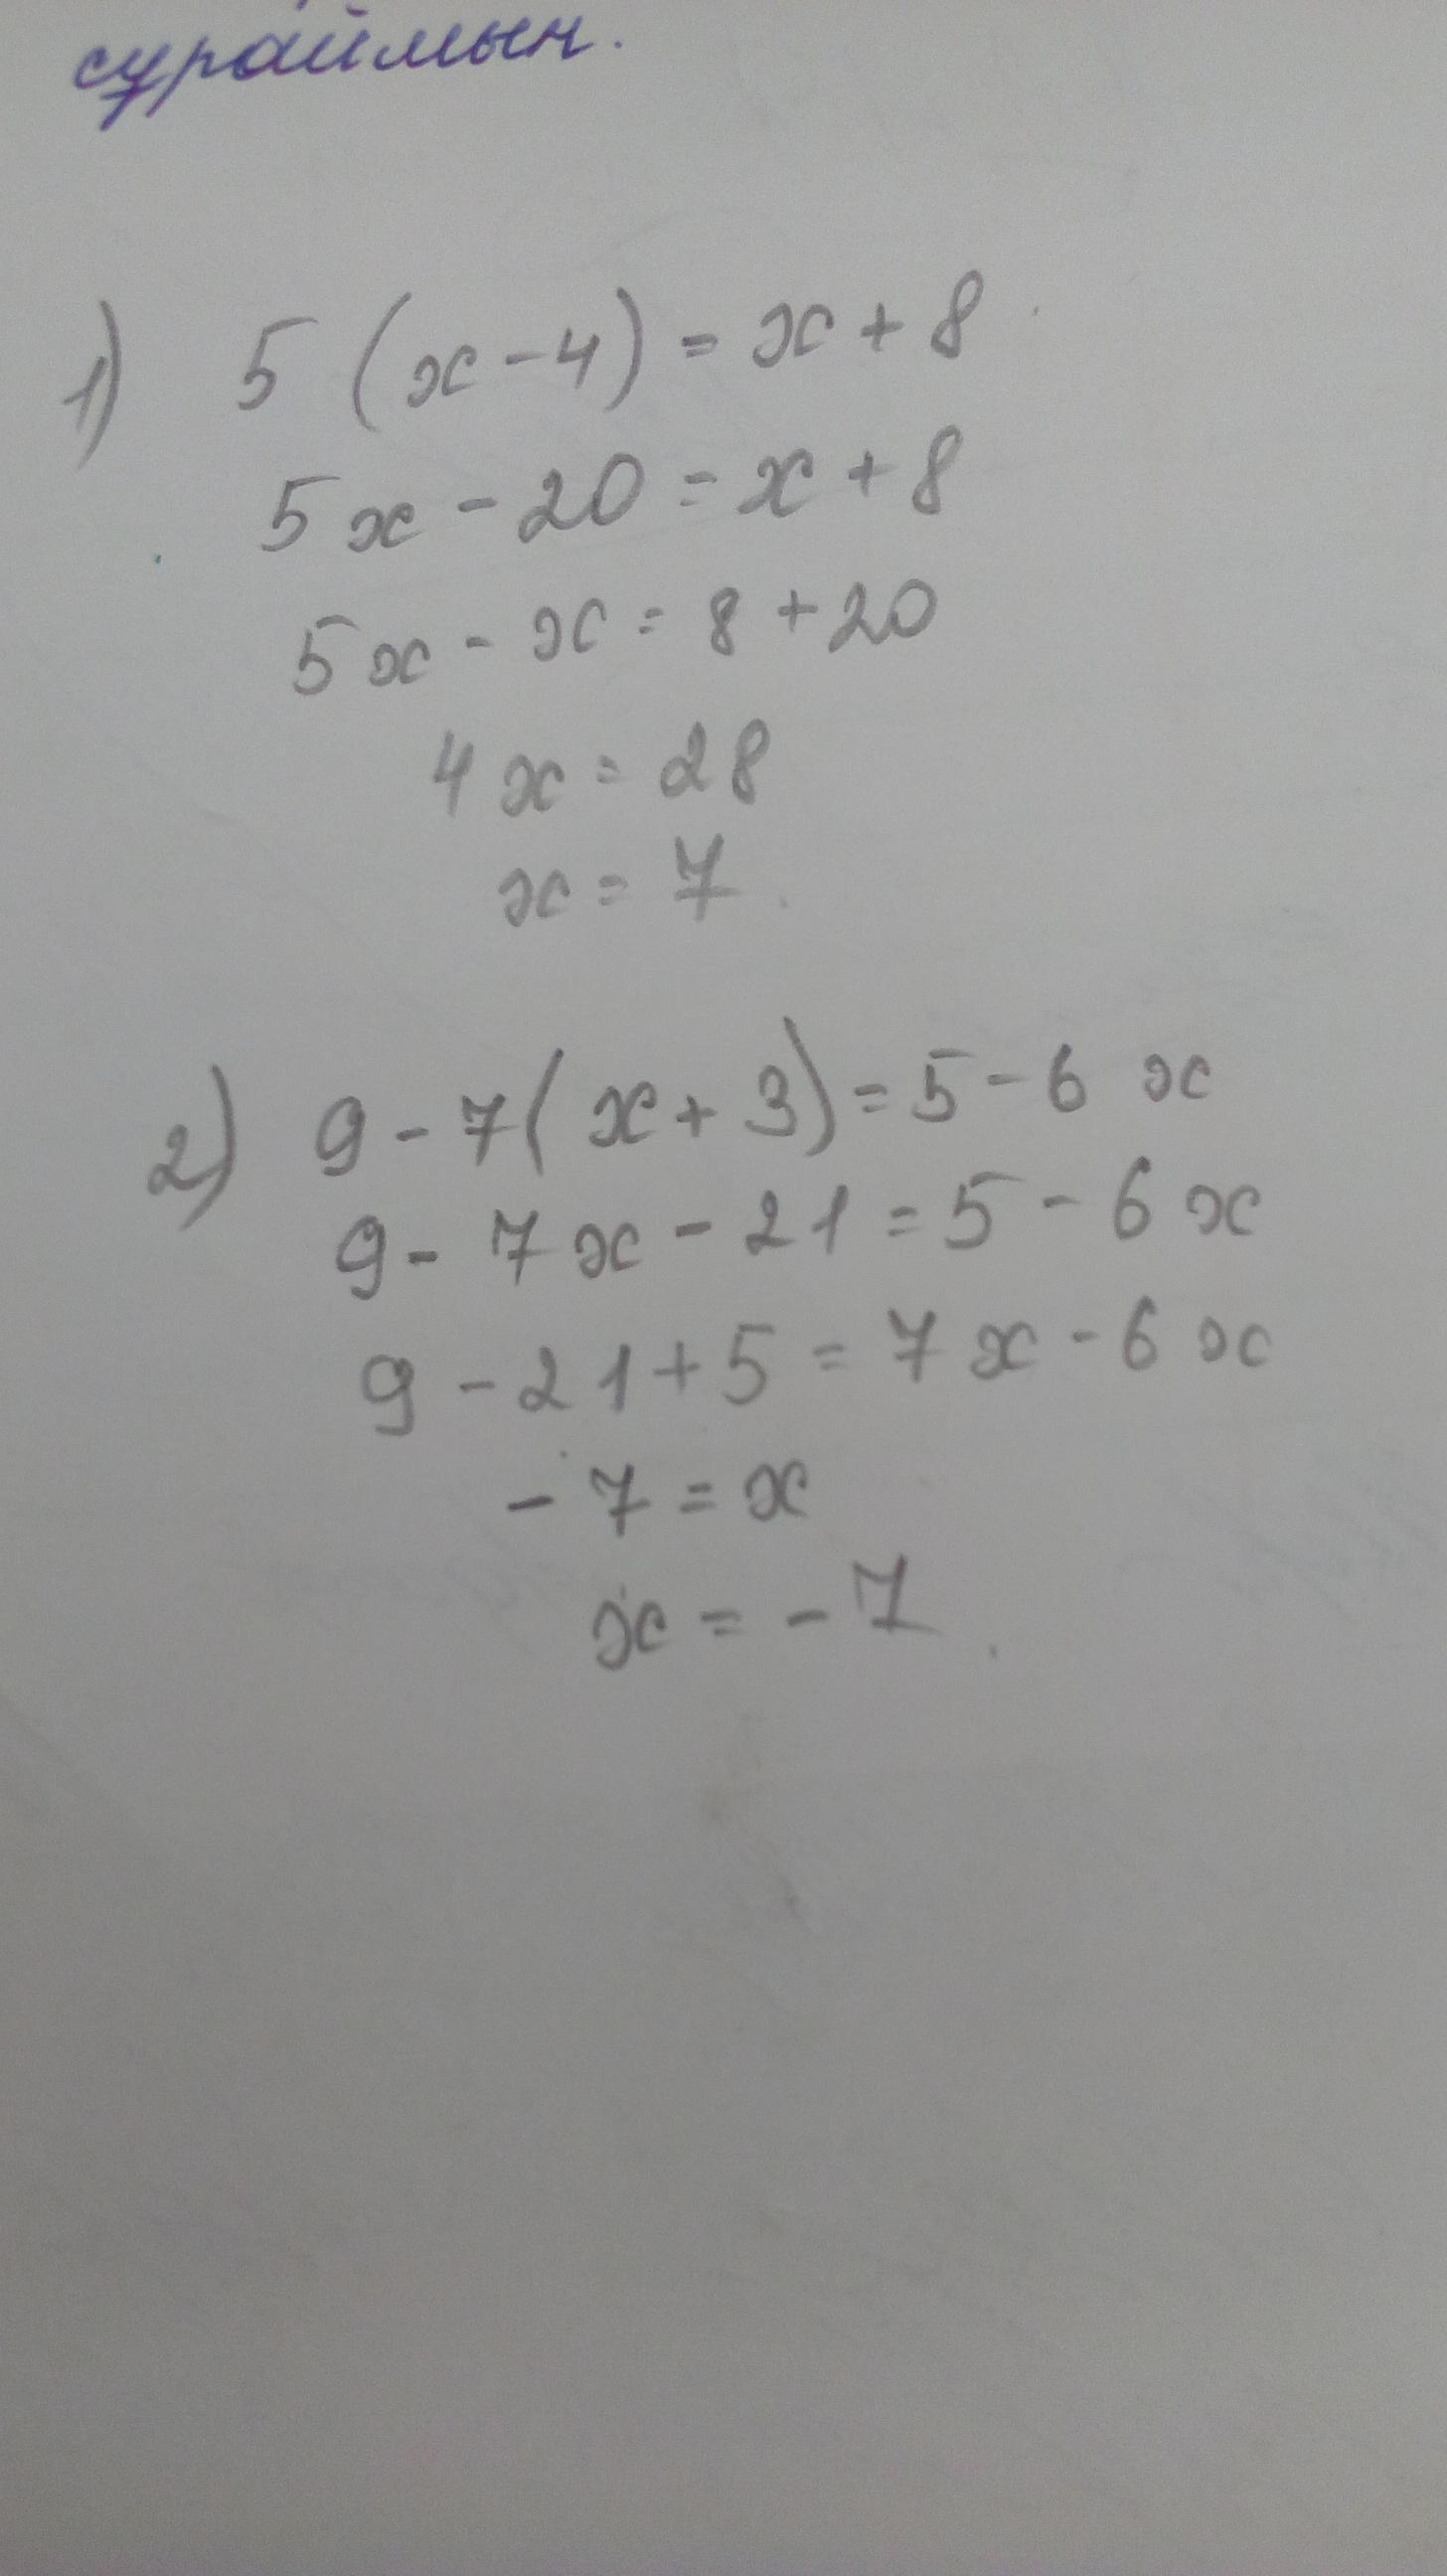 сұраймын.
1) 5 (x - 4) = x + 8
5x - 20 = x + 8
5x - x = 8 + 20
4x = 28
x = 7
2) 9 - 7(x + 3) = 5 - 6x
9 - 7x - 21 = 5 - 6x
9 - 21 + 5 = 7x - 6x
- 7 = x
x = - 7